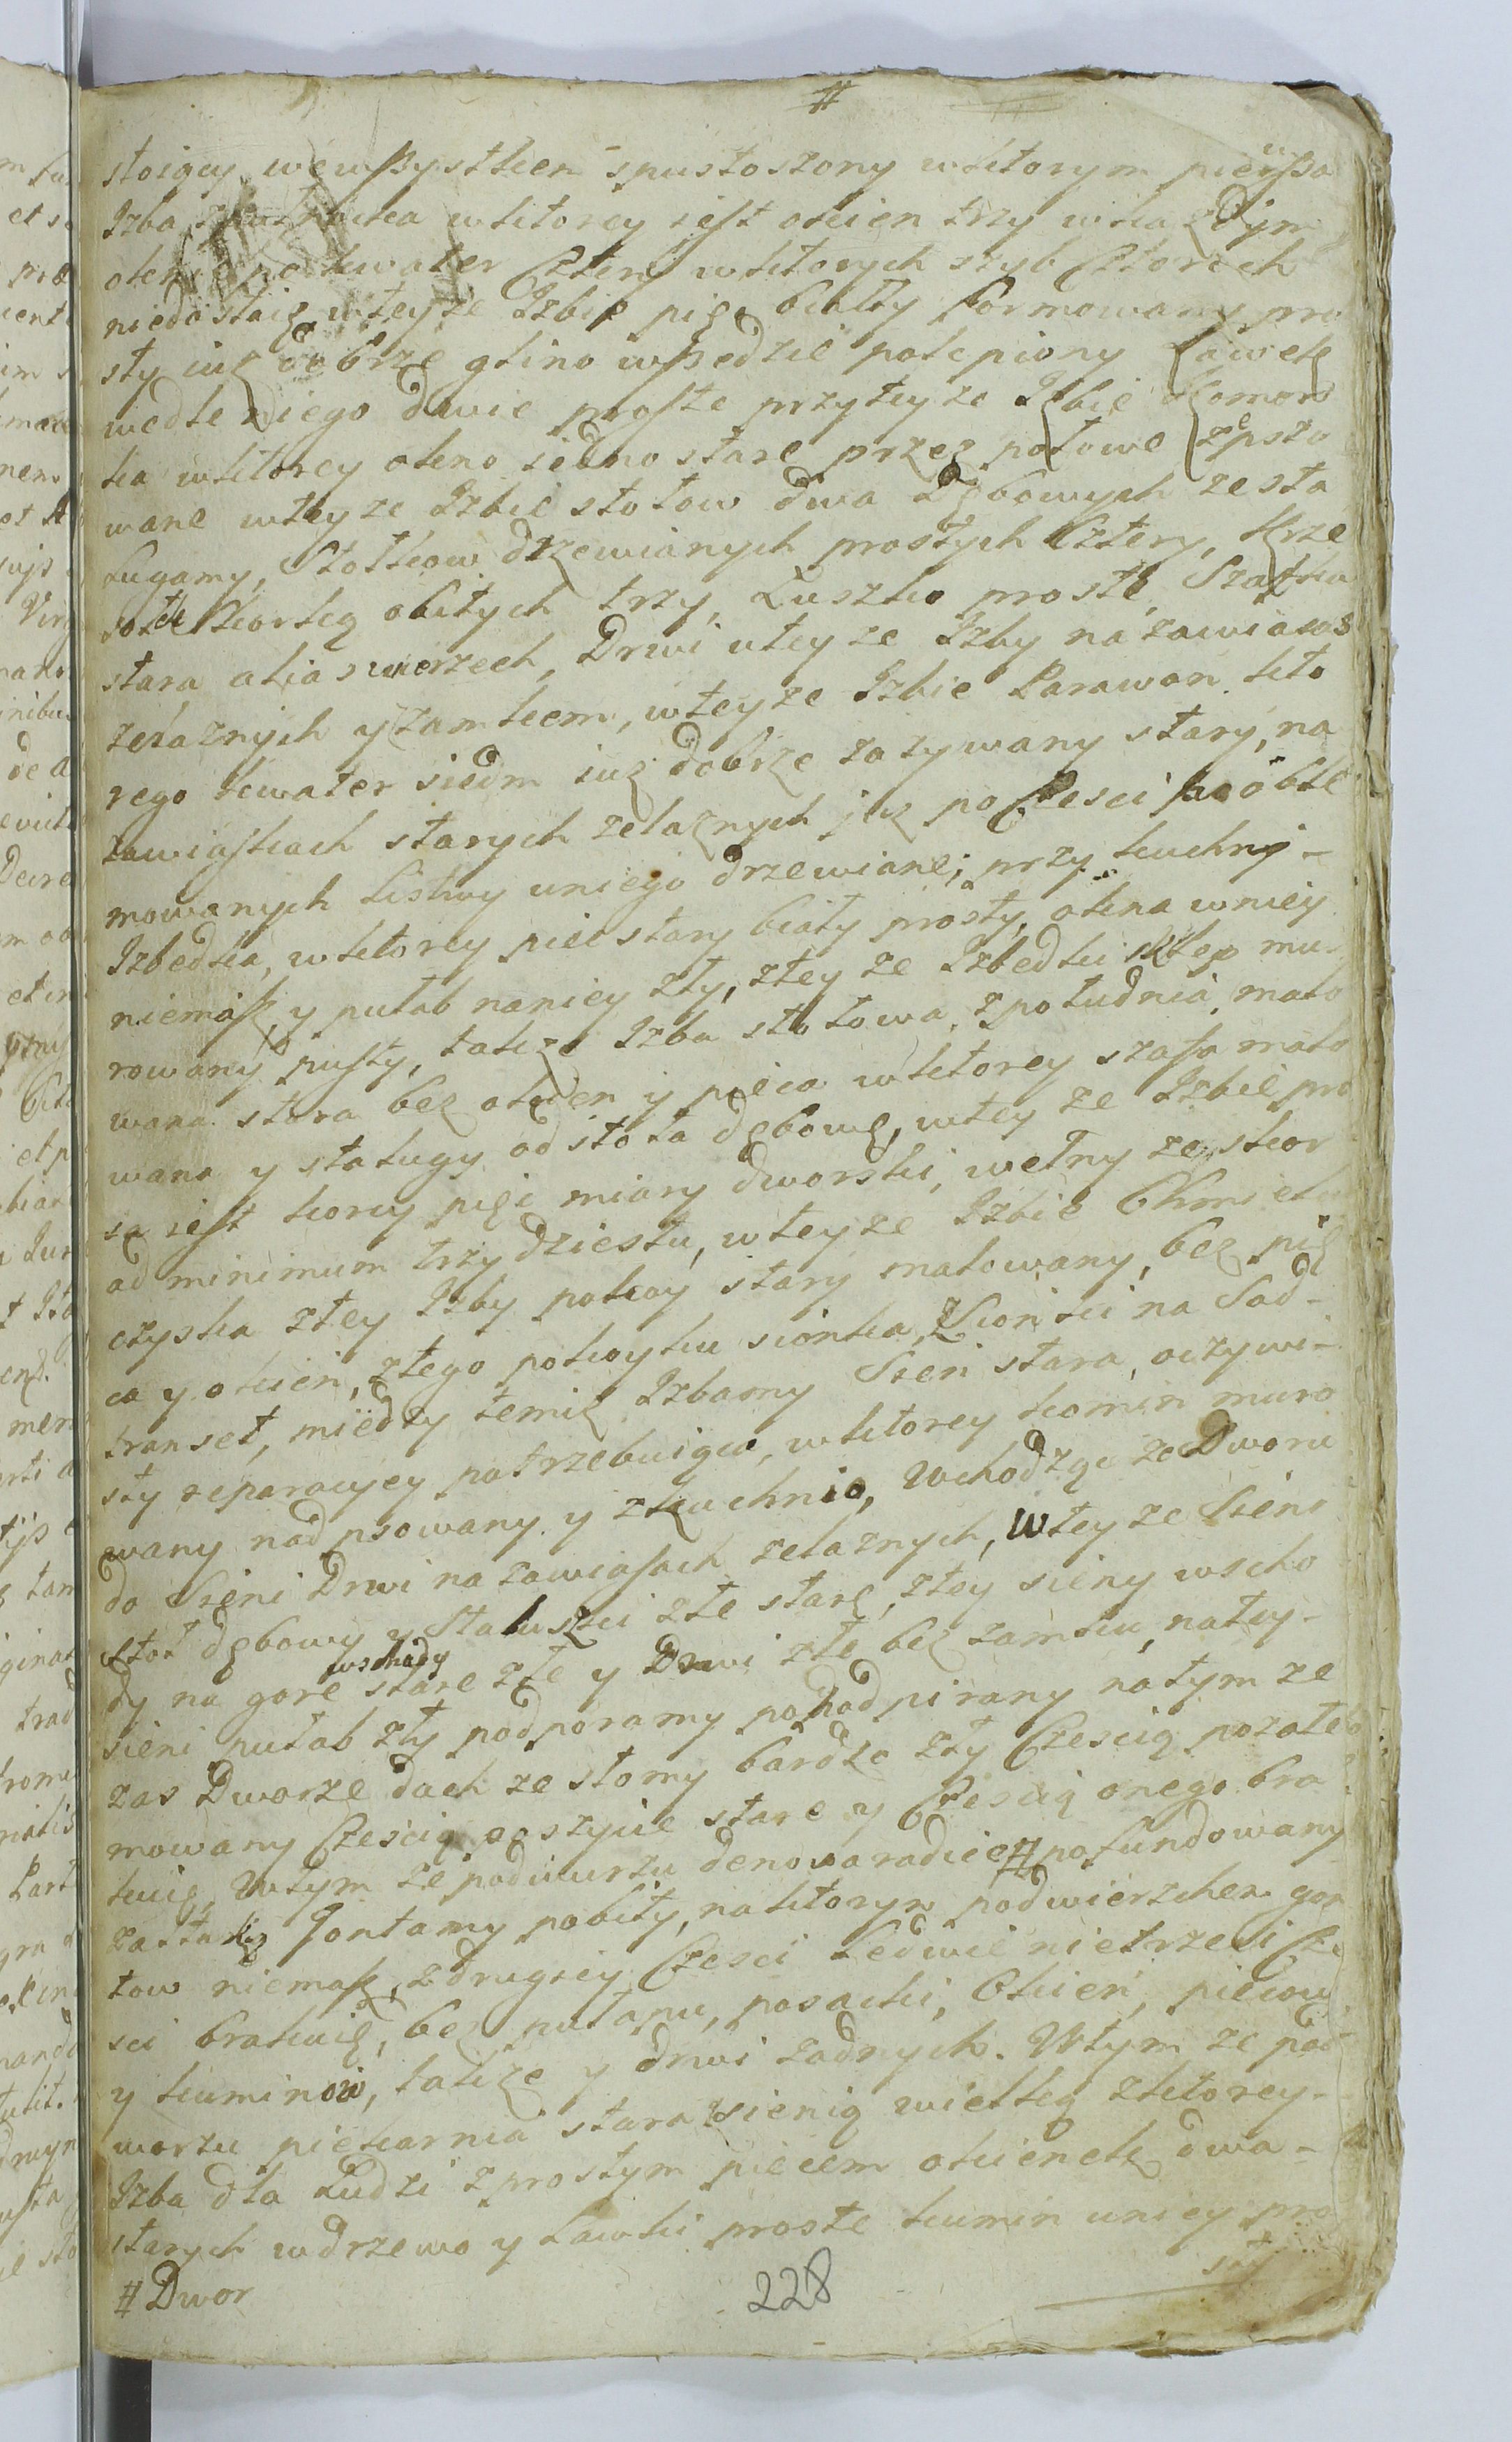 #
stoiący wewszystkiem spustoszony wktorym pierwsza
Izba wktorey iest okien trzy wkazdym
oknie po kwater cztery wktorych szyb czterech
niedostaie wteyze Izbie piec biały formowany pro
sty iuz dobrze glino wszedzie polepiony Ławek
wedle niego dwie proste przyteyze Izbie Komor
ka wktorey okno iedno stare przez połowe zepso
wane wteyze Izbie stołow dwa Dębowych zesta
lugamy, Stołkow drzewianych prostych Cztery, Krze
sołek skorką obitych trzy, Łuszko proste, Szafka
stara alias wierzech, Drwi uteyze Izby na zawiasos
zelaznych y zamkiem, wteyze Izbie Parawan kto
rego kwater siedm iuz dobrze zazywany stary, na
zawiaskach starych zelaznych iuz po Czesci
mowanych listwy uniego drzewiane; przy kuchnj-
Izbedka, wktorey piec stary biały prosty, okna wniey
niemasz y pułab naniey zły, ztey ze Izbedki sklep mu-
rowany pusty, takze Izba stołowa, z południa, malo
wana stara bez okien y pieca wktorey szafa malo
wana y stalugy od stoła dębowę, wtey ze Izbie pro
sa iest korcy pięć miary dworski, wełny ze skor
ad minimum trzydziestu, wteyze Izbie Chmielu
czyska ztey Izby pokoy stary malowany, bez pie
ca y okien, ztego pokoyku sionka, z Sionki na Sad-
transet, między temiz Izbamy Sien stara, oczywi-
sty reparacyey potrzebuiąca, wktorey komin muro
wany nadpsowany y zkuchnio, Wchodząc ze Dworu
do Sieni Drwi na zawiasach zelaznych, Wteyze Sieni
stoł dębowy y Staluszki złe stare, ztey sieny wscho
dy na gore wschady stare złe y Drwi złe bez zamku, natey-
sieni pułab zły podporamy popodpirany natym ze
zas Dworze dach ze słomy bardzo zły Czescią pozałe
mowany Czescią poszycie stare y Czescią onego bra
kuie, Wtym ze podwurzu denova radice # pofundowany
zastały Jontamy pobity, naktorym podwierzchem gon
tow niemasz, zdrugiey Czesci ledwie nietrzeci cze
sci brakuię, bez pułapu, posacki, Okien, piecow
y kuminow, takze y drwi zadnych. Wtym ze pod
worzu piekarnia stara zsienią wielką zktorey-
Izba dla Ludzi zprostym piecem okienek dwa-
starych wdrzewo y Ławki proste kumin uniey pro
sty
# Dwor
228